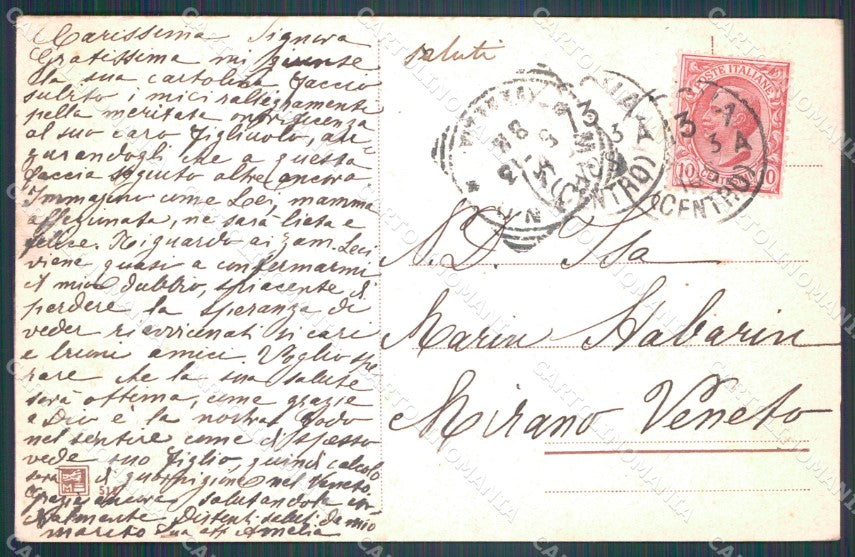 Carissima Signora
Gratissima mi giunse
la sua cartolina. Faccio
subito i miei rallegramenti
pella meritata onorificenza
al suo caro figliuolo, au-
gurandogli che a questa
faccia seguito altre ancora
Immagino come Lei, mamma
affezionata, ne sarà lieta e
felice. Riguardo ai Lei
viene quasi a confermarmi
il mio dubbio, spiacente di
perdere la speranza di
veder riavvicinati si cari
e buoni amici. Voglio spe-
rare che la sua salute
sarà ottima, come grazie
a Dio è la nostra. Godo
nel sentire come di spesso
vede suo figlio, quindi calcolo
sarà di guarnigione nel Veneto.
Grazie ancora salutandola cor-
dialmente Distinti saluti da mio
marito Sua aff. Amelia
saluti
POSTE ITALIANE
10 10
(CENTRO)
(CENTRO)
N. D. Isa
Marin
Mirano Veneto
CARTOLINOMANIA